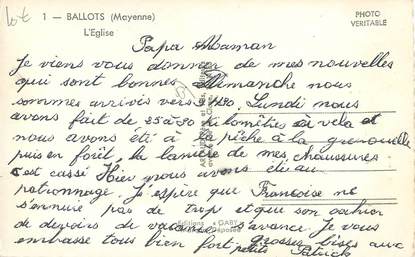 lot
1 — BALLOTS (Mayenne)
L'Eglise
PHOTO
VERITABLE
Papa Maman
Je viens vous donner de mes nouvelles
qui sont bonnes Dimanche nous
sommes arrivés vers Lundi nous
avons fait de 25 à 30 kilomètres à vélo et
nous avons été à la pêche à la grenouille
puis en forêt, la lanière de mes chaussures
est cassé Hier nous avons été au
patronnage. J'espère que Françoise ne
s'ennuie pas de trop et que son cahier
de devoirs de vacances avance. Je vous
embrasse tous bien fort grosses bises aux
petits Patrick
Editions GABY